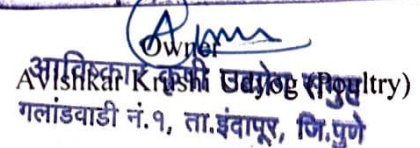 Owner
Avishkar Krushi Udyog (Poultry)
आविष्कार कृषी उद्योग समुह
गलांडवाडी नं.१, ता.इंदापूर, जि.पुणे